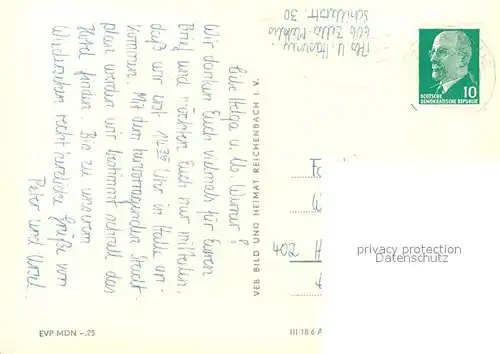 Abs. U.
606 Zella-Mehlis
Schillerstr. 30
DEUTSCHE
DEMOKRATISCHE REPUBLIK
10
Liebe Helga u. lb. Werner!
Wir danken Euch vielmals für Euren
Brief und möchten Euch nur mitteilen,
daß wir erst Uhr in Halle an-
kommen. Mit dem hervorragenden Stadt-
plan werden wir bestimmt schnell das
Hotel finden. Bis zu unserem
Wiedersehen recht herzliche Grüße von
Peter und Ursel.
VEB BILD UND HEIMAT REICHENBACH I. V.
402 H
privacy protection
Datenschutz
EVP MDN -.25
III 18 6 A